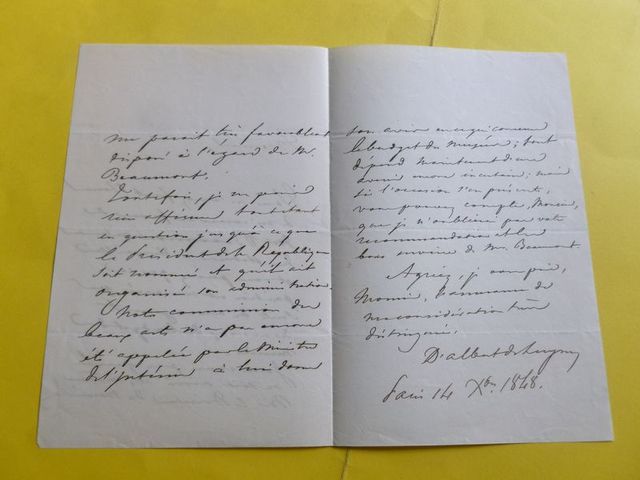 me parait très favorablement
disposé à l'égard de Mr.
Beaumont.
Toutefois, je ne puis
rien affirmer tout étant
en question jusqu'à ce que
le Président de la République
soit nommé et qu'il ait
organisé son administration.
Notre commission des
beaux arts n'a pas encore
été appelée par le Ministre
de l'Intérieur à lui donner
son avis en ce qui concerne
le budget du musée; tout
dépend maintenant d'un
avenir encore incertain; mais
si l'occasion s'en présente,
vous pouvez compter, Monsieur,
que je n'oublierai pas votre
recommandation et les
bons services de Mr. Beaumont.
Agréez, je vous prie,
Monsieur, l'assurance de
ma considération très
distinguée.
D'albert de Luynes
Paris 14 Xbre 1848.